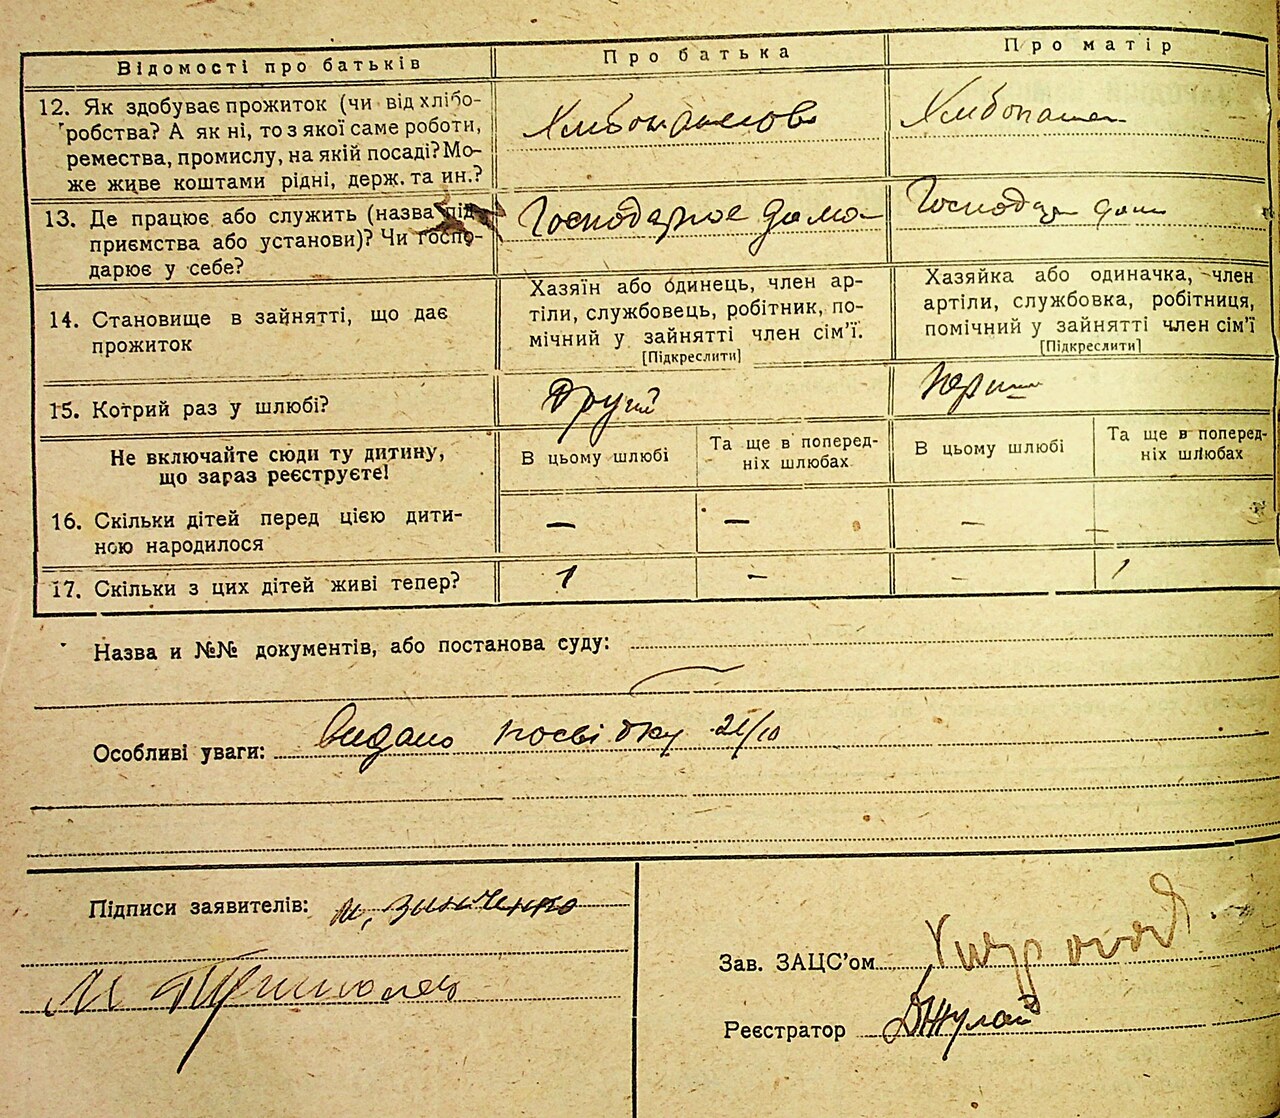 Відомості про батьків Про батька Про матір
12. Як здобуває прожиток (чи від хлібо-
робства? А як ні, то з якої саме роботи,
ремества, промислу, на якій посаді? Мо-
же живе коштами рідні, держ. та ин.?
13. Де працює або служить (назва під-
приємства або установи)? Чи госпо-
дарює у себе?
Господарює дома
Господар дома
14. Становище в зайнятті, що дає
прожиток
Хазяїн або одинець, член ар-
тіли, службовець, робітник, по-
мічний у зайнятті член сім'ї.
[Підкреслити]
Хазяйка або одиначка, член
артіли, службовка, робітниця,
помічний у зайнятті член сім'ї
[Підкреслити]
15. Котрий раз у шлюбі?
Другий
Не включайте сюди ту дитину,
що зараз реєструєте!
В цьому шлюбі
Та ще в поперед-
ніх шлюбах
В цьому шлюбі
Та ще в поперед-
ніх шлюбах
16. Скільки дітей перед цією дити-
ною народилося
— — — —
17. Скільки з цих дітей живі тепер?
1 — — 1
Назва и №№ документів, або постанова суду:
Особливі уваги: Видано посвідку 21/10
Підписи заявителів: М. Зинченко
М
Зав. ЗАЦС'ом
Реєстратор Джулай